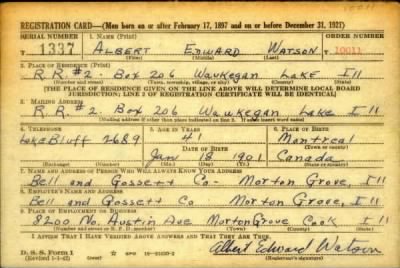 REGISTRATION CARD—(Men born on or after February 17, 1897 and on or before December 31, 1921)
SERIAL NUMBER 1. NAME (Print) ORDER NUMBER
T 1337 ALBERT EDWARD WATSON T 10011
(First) (Middle) (Last)
2. PLACE OF RESIDENCE (Print)
R.R. #2. Box 206 Waukegan Lake Ill
(Number and street) (Town, township, village, or city) (County) (State)
[THE PLACE OF RESIDENCE GIVEN ON THE LINE ABOVE WILL DETERMINE LOCAL BOARD
JURISDICTION; LINE 2 OF REGISTRATION CERTIFICATE WILL BE IDENTICAL]
3. MAILING ADDRESS
R.R. #2. Box 206 Waukegan Lake Ill
[Mailing address if other than place indicated on line 2. If same insert word same]
4. TELEPHONE 5. AGE IN YEARS 6. PLACE OF BIRTH
Lake Bluff 2689 41 Montreal
DATE OF BIRTH (Town or county)
Jan 18 1901 Canada
(Exchange) (Number) (Mo.) (Day) (Yr.) (State or country)
7. NAME AND ADDRESS OF PERSON WHO WILL ALWAYS KNOW YOUR ADDRESS
Bell and Gossett Co - Morton Grove, Ill
8. EMPLOYER'S NAME AND ADDRESS
Bell and Gossett Co Morton Grove, Ill
9. PLACE OF EMPLOYMENT OR BUSINESS
8200 No. Austin Ave Morton Grove Cook Ill
(Number and street or R. F. D. number) (Town) (County) (State)
I AFFIRM THAT I HAVE VERIFIED ABOVE ANSWERS AND THAT THEY ARE TRUE.
D. S. S. Form 1
Albert Edward Watson
(Registrant's signature)